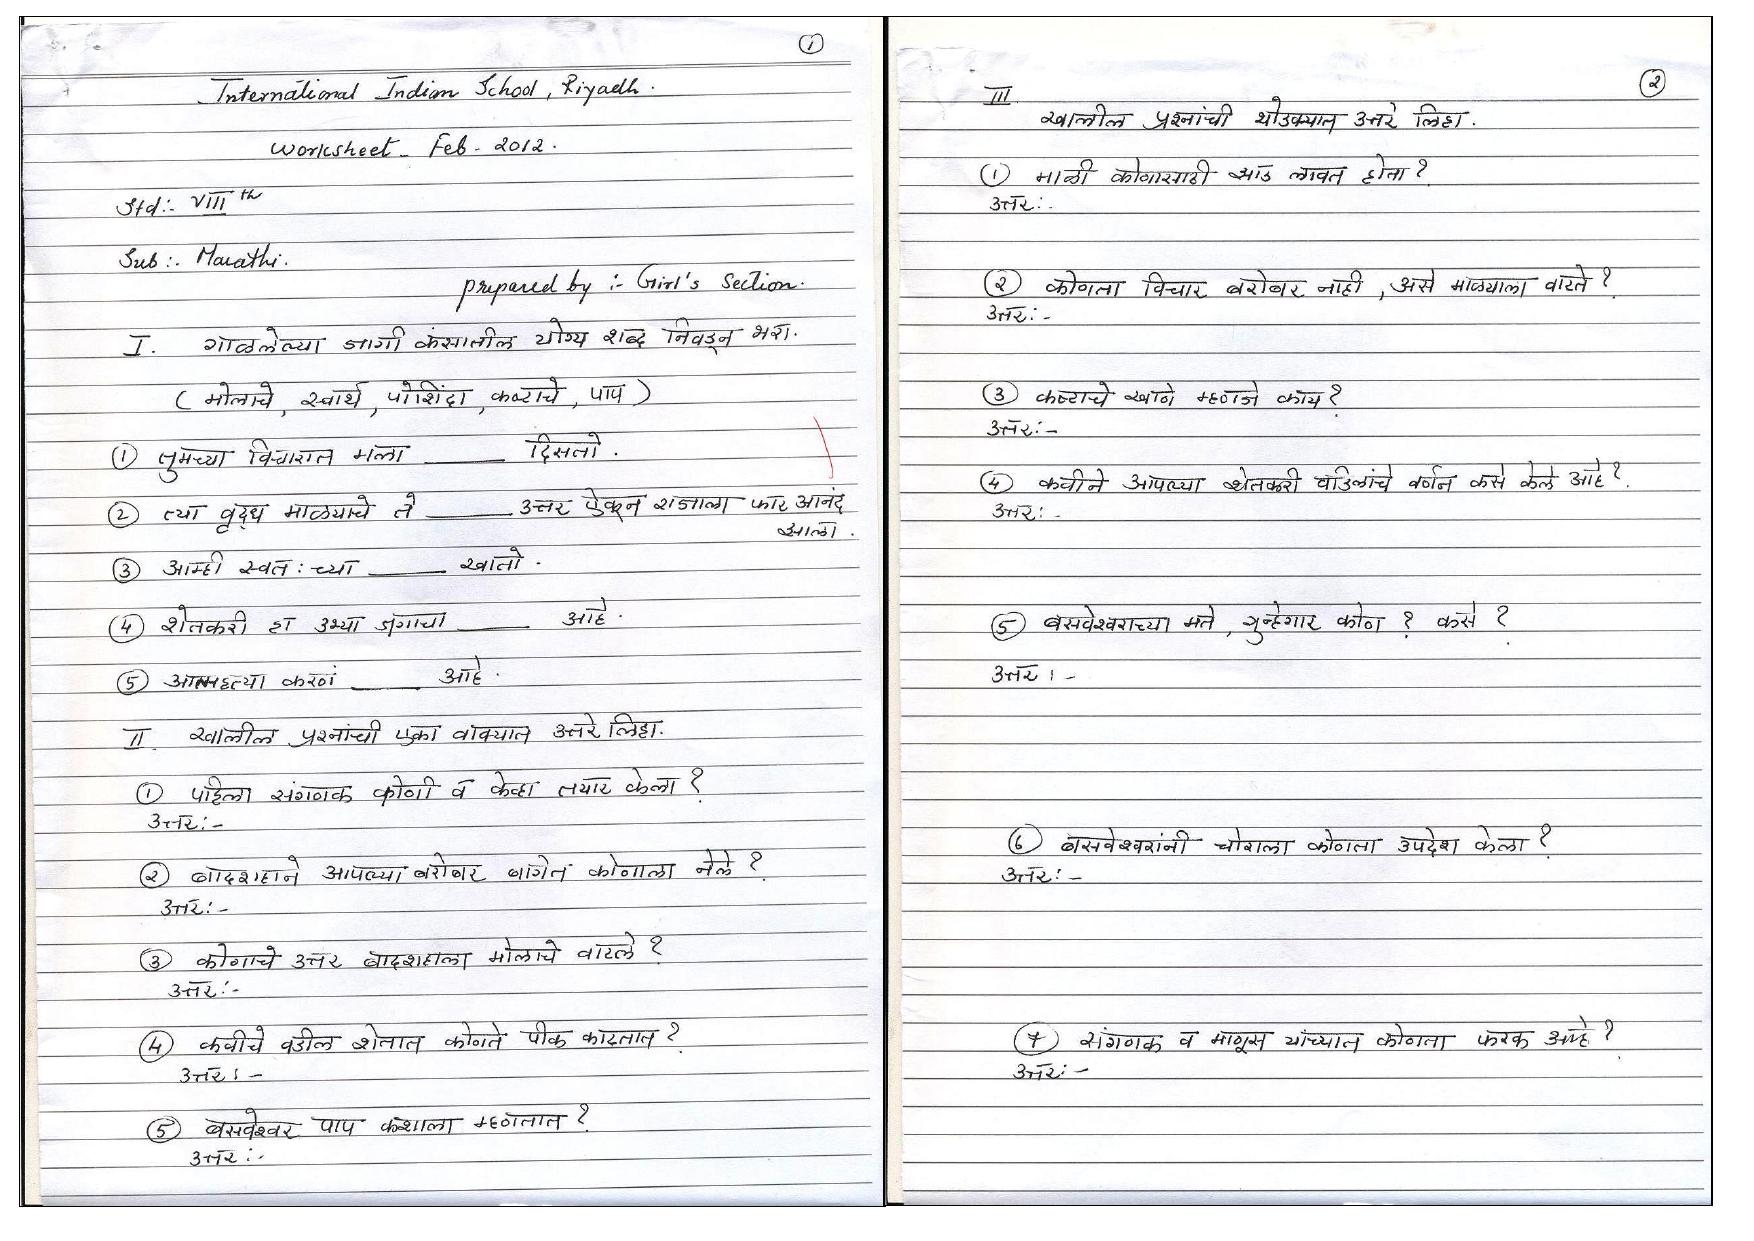 ①
International Indian School, Riyadh.
Worksheet - Feb - 2012.
Std:- VIIIth
Sub:- Marathi.
prepared by :- Girl's Section.
I. गाळलेल्या जागी कंसातील योग्य शब्द निवडून भरा.
( मोलाचे, स्वार्थ, पोशिंदा, कष्टाचे, पाप )
① तुमच्या विचारात मला ______ दिसतो.
② त्या वृद्ध माळयाचे ते ______ उत्तर ऐकून राजाला फार आनंद
झाला.
③ आम्ही स्वत:च्या ______ खातो.
④ शेतकरी हा उभ्या जगाचा ______ आहे.
⑤ आत्महत्या करणं ______ आहे.
II. खालील प्रश्नांची एका वाक्यात उत्तरे लिहा.
① पहिला संगणक कोणी व केव्हा तयार केला?
उत्तर:-
② बादशहाने आपल्या बरोबर बागेत कोणाला नेले?
उत्तर:-
③ कोणाचे उत्तर बादशहाला मोलाचे वाटले?
उत्तर:-
④ कवीचे वडील शेतात कोणते पीक काढतात?
उत्तर:-
⑤ बसवेश्वर पाप कशाला म्हणतात?
उत्तर:-
②
III.
खालील प्रश्नांची थोडक्यात उत्तरे लिहा.
① माळी कोणासाठी झाड लावत होता?
उत्तर:-
② कोणता विचार बरोबर नाही, असे माळयाला वाटते?
उत्तर:-
③ कष्टाचे खाणे म्हणजे काय?
उत्तर:-
④ कवीने आपल्या शेतकरी वडिलांचे वर्णन कसे केले आहे?
उत्तर:-
⑤ बसवेश्वराच्या मते, गुन्हेगार कोण? कसे?
उत्तर:-
⑥ बसवेश्वरांनी चोराला कोणता उपदेश केला?
उत्तर:-
⑦ संगणक व माणूस यांच्यात कोणता फरक आहे?
उत्तर:-